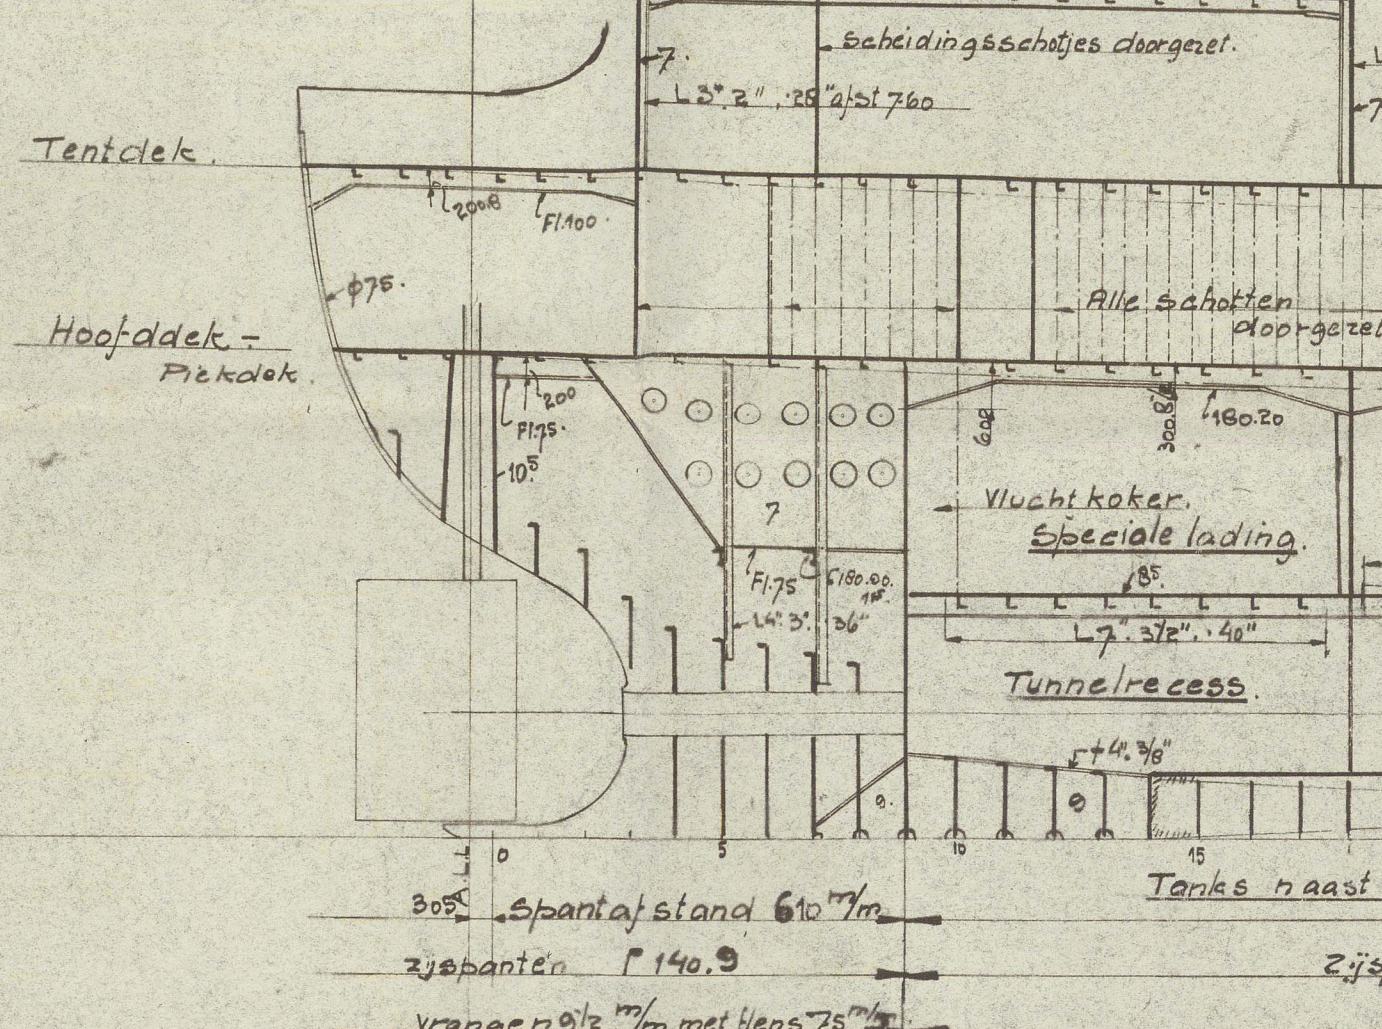 Scheidingsschotjes doorgezet.
7.
L 3". 2" . 28" afst 760
Tentdek.
200.8
Fl.100.
ϕ75.
Alle schotten
doorgezet
Hoofddek -
Piekdek.
200
Fl.75.
10⁵
7
60.8
180.20
Vluchtkoker.
Speciale lading.
Fl.75
L4". 3". 36"
85.
L7". 3½". 40"
Tunnelrecess.
4". 3/8"
9.
9
0
5
10
15
A.LL
Tanks naast
305
Spantafstand 610 m/m
zijspanten 140.9
Zijs
vrangen 9½ m/m met flens 75 m/m